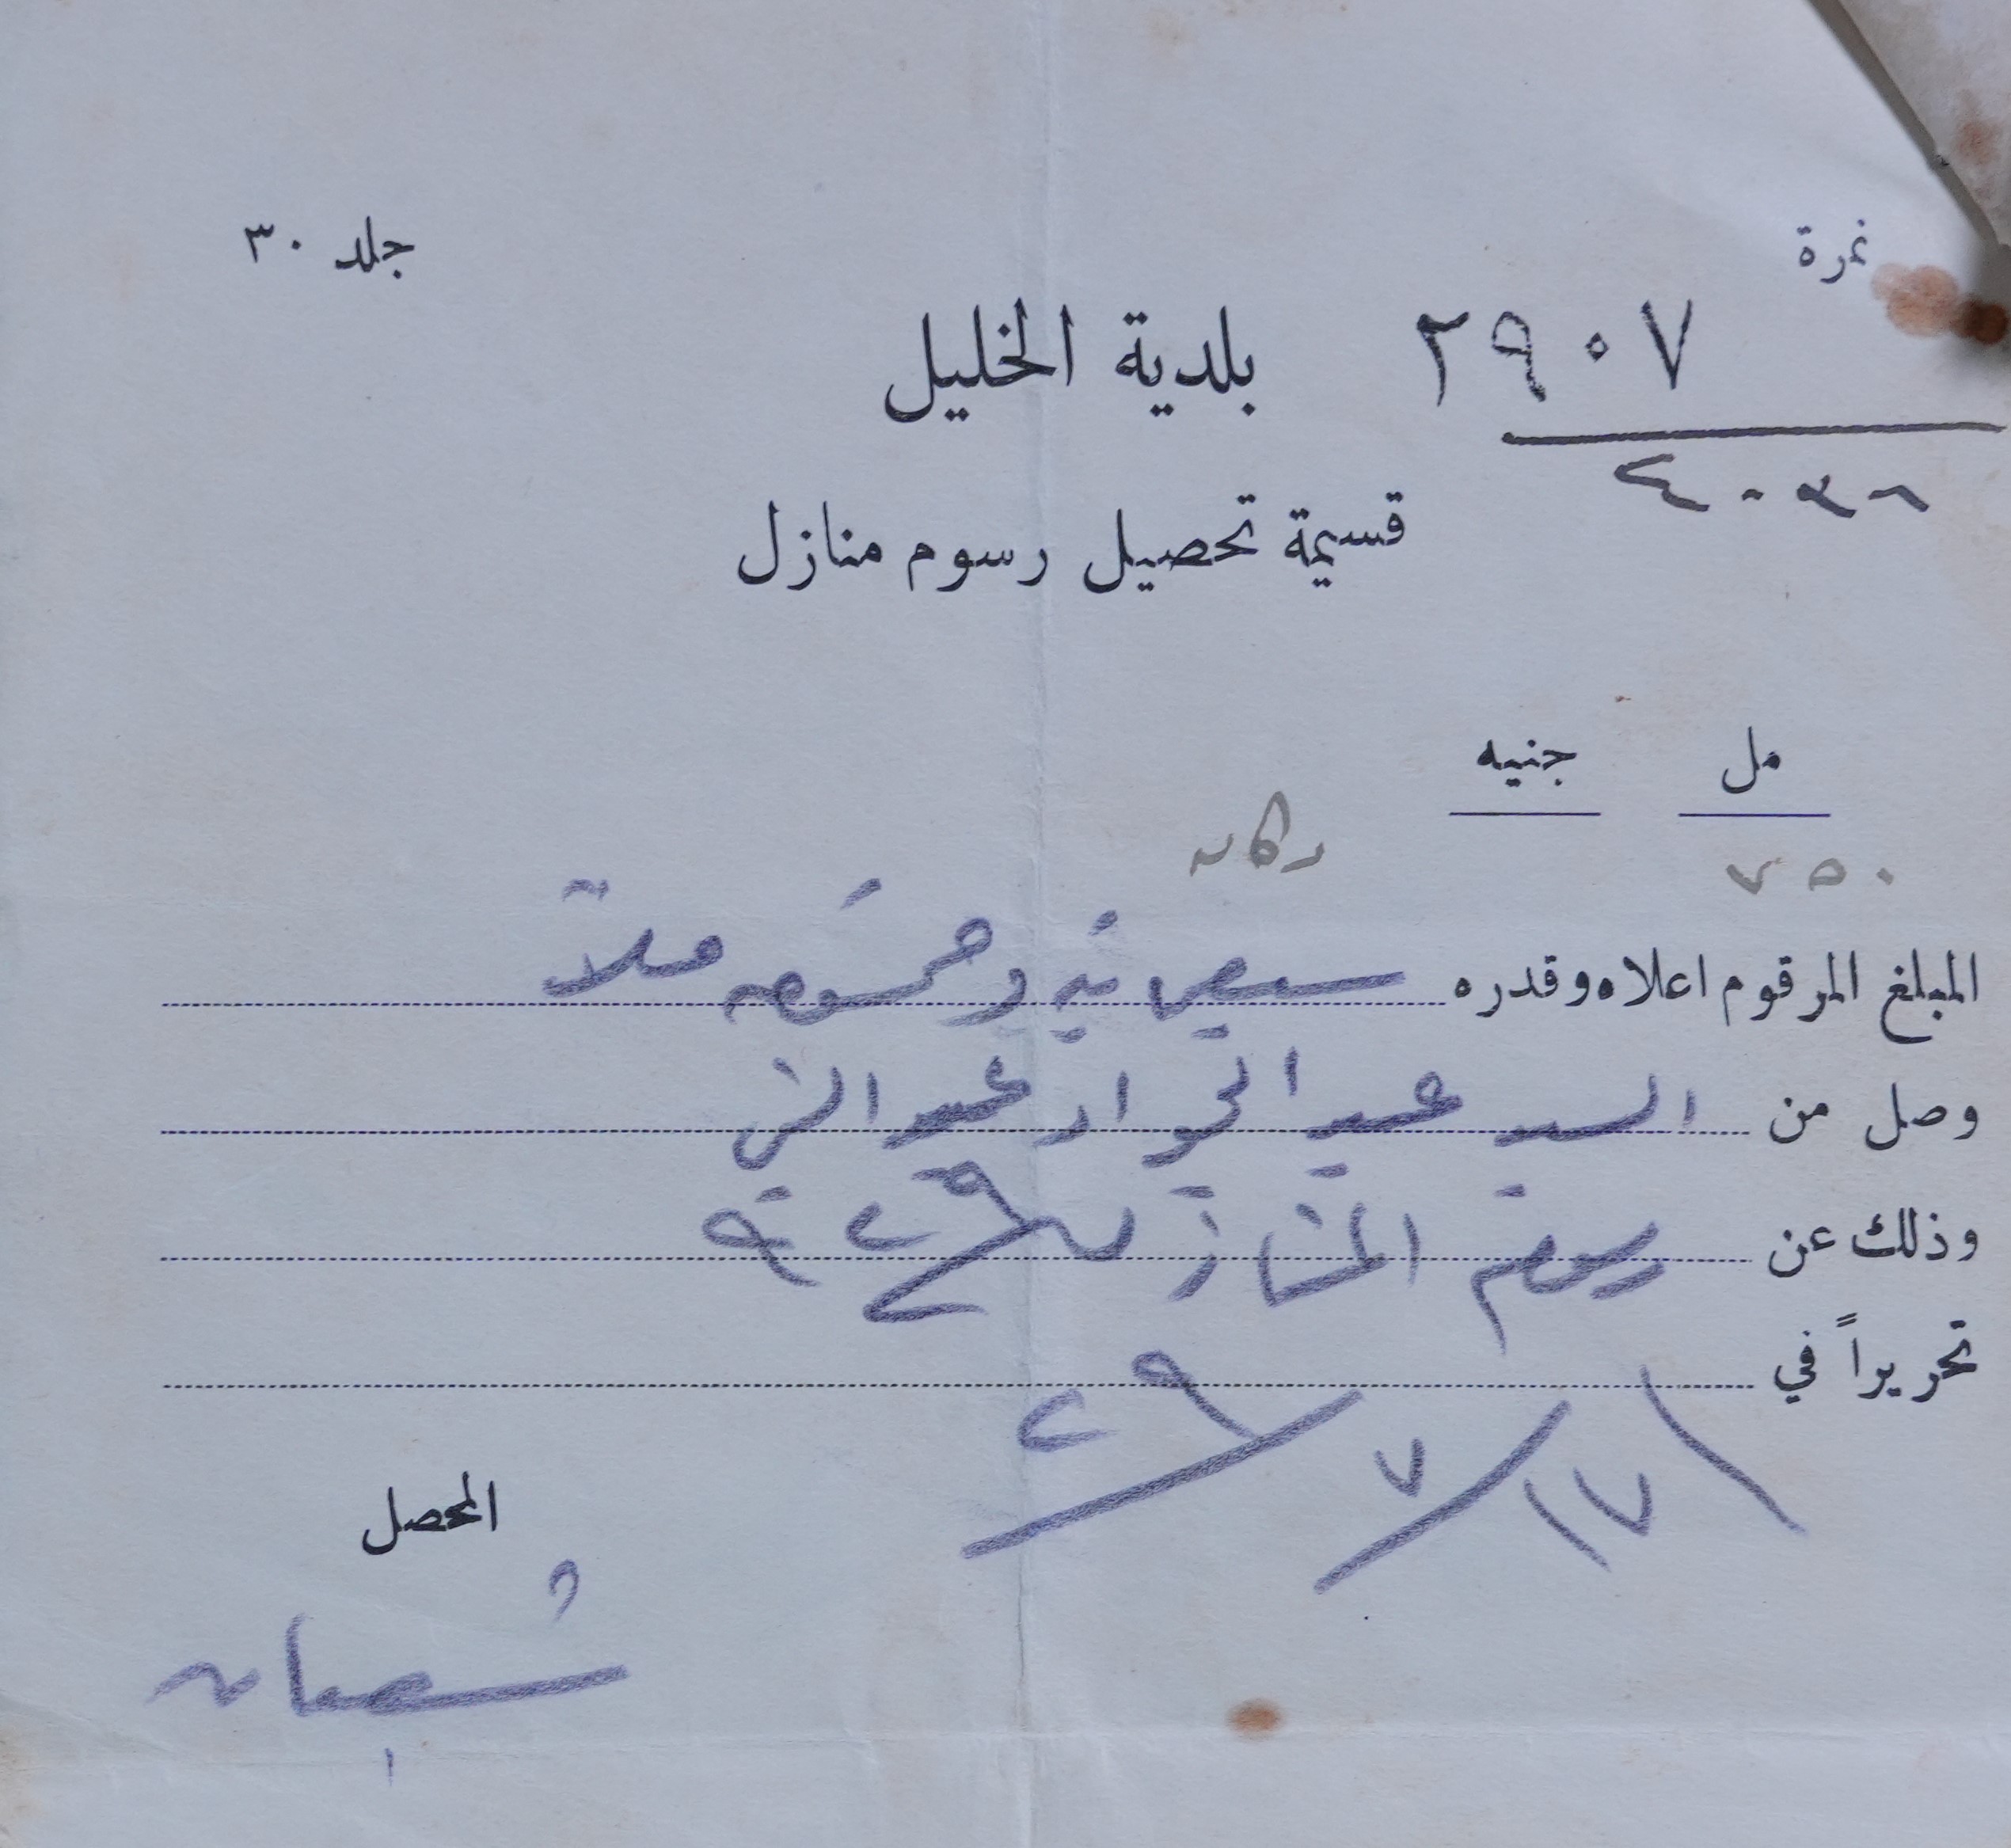 نمرة
جلد ٣٠
٢٩٠٧
بلدية الخليل
قسيمة تحصيل رسوم منازل
مل جنيه
٧٥٠
دكان
المبلغ المرقوم اعلاه وقدره سبعماية وخمسون ملا
وصل من السيد عبد الجواد عبد النبي
وذلك عن رسوم المنازل ٤٩
تحريراً في ١٧ / ٧ / ٤٩
المحصل
شعبان